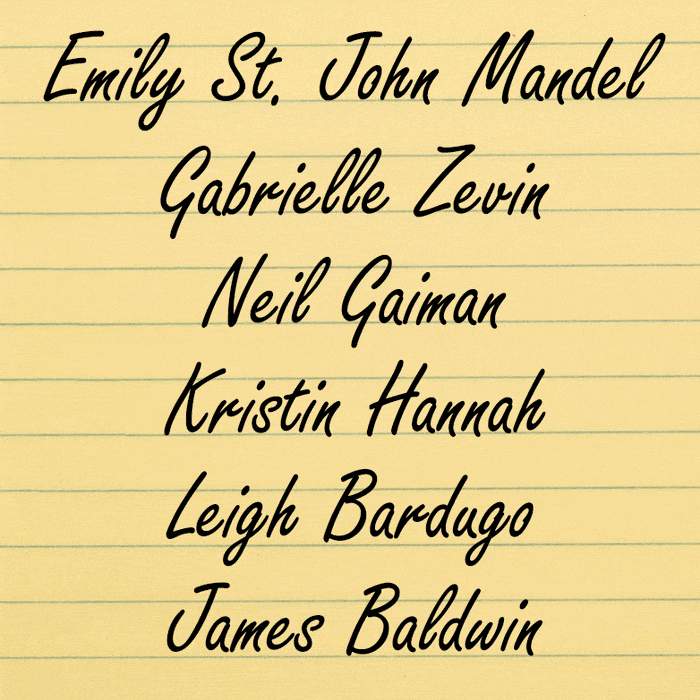 Emily St. John Mandel
Gabrielle Zevin
Neil Gaiman
Kristin Hannah
Leigh Bardugo
James Baldwin